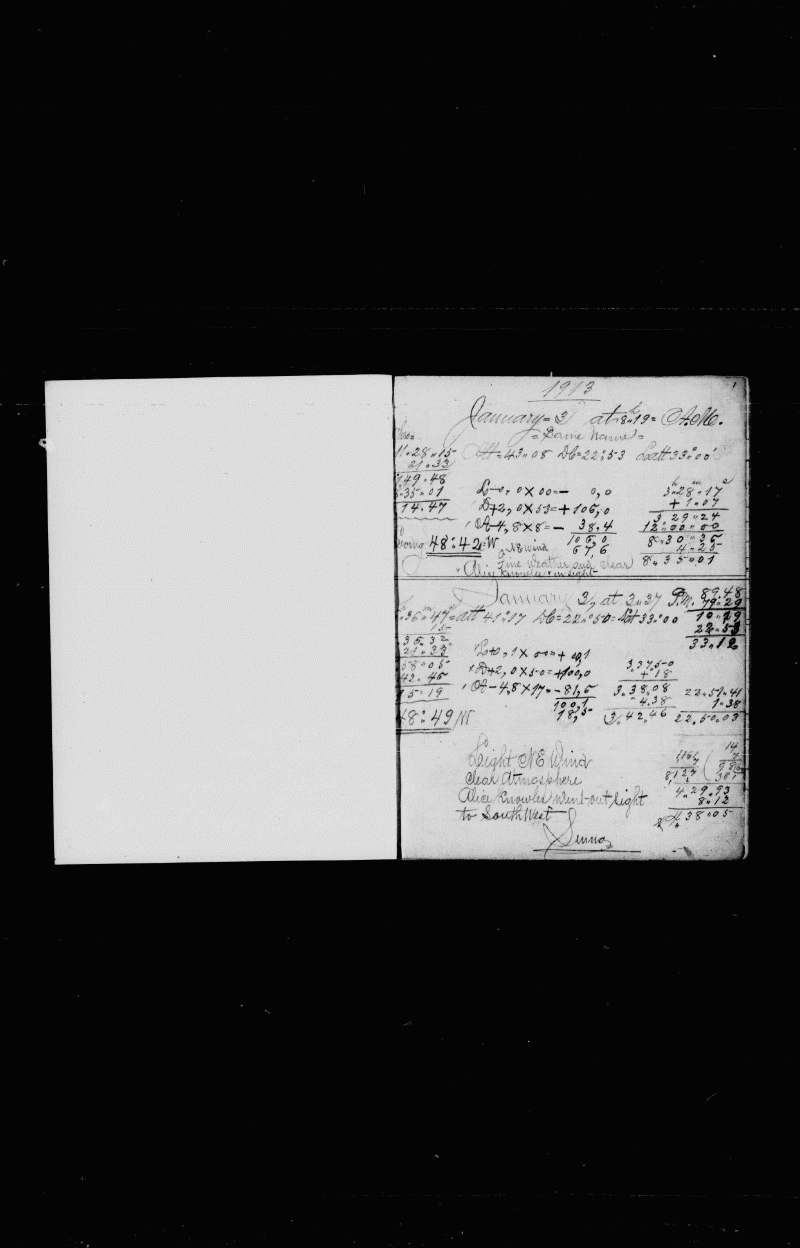 1913
January = 3 at 8.19 = A.M.
= Same Name =
11.28.15 Alt = 43.08 Dc = 22:53 Latt 33°00'
21.33
49.48
35.01
14.47
L - 0,0 X 00 = - 0,0
D + 2,0 X 53 = + 106,0
A - 4,8 X 8 = - 38.4
106,0
67,6
3.28.17
+ 1.07
3 29.24
12.00.00
8.30.36
4.25
8.35.01
Long 48:42:W
NE wind
Fine Weather and Clear
Alice Knowles in Sight
January 3, at 3.37 P.M.
89.48
79.29
10.19
22.53
33.12
36.47 = alt 41:17 Dc = 22.50 = Latt 33:00
15
36.32
21.33
58.05
42.46
15.19
48:49 W
L + 0,1 X 00 = + 0,1
D + 2,0 X 50 = + 100,0
A - 4,8 X 17 = - 81,6
100,1
18,5
3.37.50
+ 18
3.38.08
4.38
3.42.46
22.51.41
1.38
22.50.03
Light NE Wind
Clear Atmosphere
Alice Knowles went out sight
to South West
14
7
4.29.93
8.12
38.05
Senna